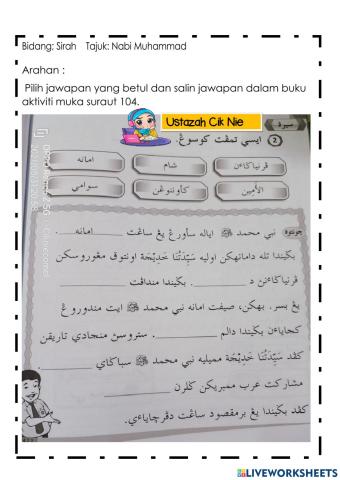 Bidang; Sirah    Tajuk: Nabi Muhammad
Arahan :
Pilih jawapan yang betul dan salin jawapan dalam buku
aktiviti muka surat 104.
Ustazah Cik Nie
سيرة
2 ايسي تمڤت کوسوڠ.
امانه شام ڤرنياݢاءن
سوامي کأونتوڠن الأمين
چونتوه نبي محمد ﷺ اياله ساورڠ يڠ ساڠت امانه.
بݢيندا تله دامانهکن اوليه سَيِّدَتُنَا خَدِيْجَة اونتوق مڠوروسکن
ڤرنياݢاءن د ________. بݢيندا منداڤت ________
يڠ بسر. بهکن، صيفت امانه نبي محمد ﷺ ايت مندوروڠ
کجاياءن بݢيندا دالم ________. ستروسڽ منجادي تاريقن
کڤد سَيِّدَتُنَا خَدِيْجَة مميليه نبي محمد ﷺ سباݢاي ________.
مشارکت عرب ممبريکن ݢلرن ________
کڤد بݢيندا يڠ برمقصود ساڠت دڤرچاياءي.
LIVEWORKSHEETS